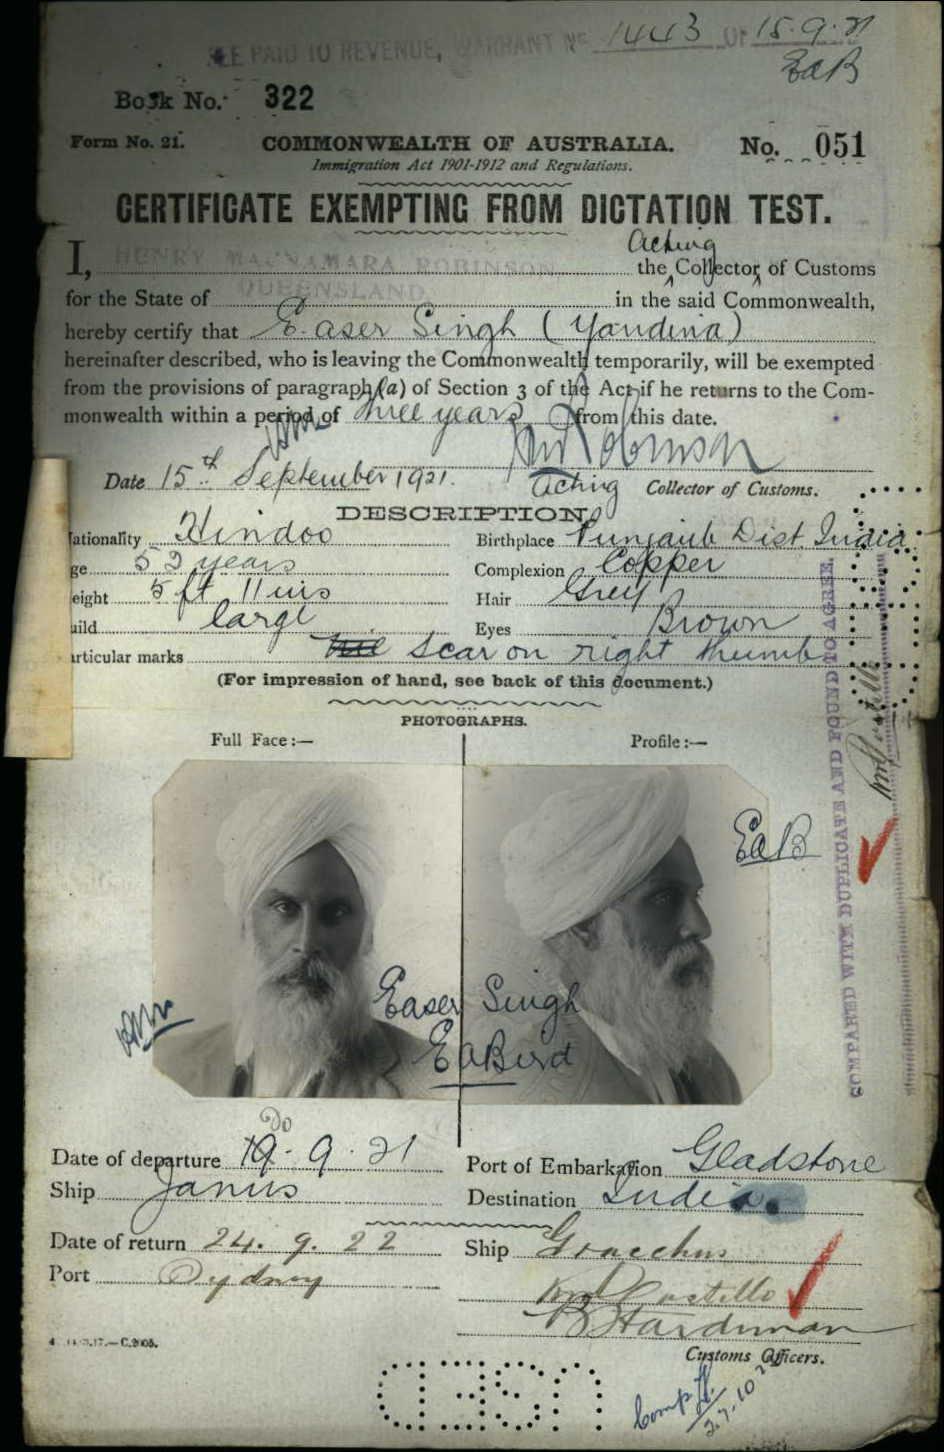 FEE PAID TO REVENUE, WARRANT No 1443 OF 15.9.21
EaB
Book No. 322
Form No. 21. COMMONWEALTH OF AUSTRALIA. No. 051
Immigration Act 1901-1912 and Regulations.
CERTIFICATE EXEMPTING FROM DICTATION TEST.
I, HENRY MACNAMARA ROBINSON the Acting Collector of Customs
for the State of QUEENSLAND in the said Commonwealth,
hereby certify that Easer Singh (Yandina)
hereinafter described, who is leaving the Commonwealth temporarily, will be exempted
from the provisions of paragraph (a) of Section 3 of the Act if he returns to the Com-
monwealth within a period of three years from this date.
Robinson
Date 15th September 1921. Acting Collector of Customs.
DESCRIPTION.
ationality Hindoo Birthplace Punjaub Dist. India
ge 52 years Complexion Copper
eight 5 ft 11 ins Hair Grey
uild large Eyes Brown
articular marks scar on right thumb
(For impression of hand, see back of this document.)
PHOTOGRAPHS.
Full Face:— Profile:—
EaB
Easer Singh
EaBird
COMPARED WITH DUPLICATE AND FOUND TO AGREE.
Do
Date of departure 19.9.21 Port of Embarkation Gladstone
Ship Janus Destination India.
Date of return 24.9.22 Ship Gracchus
Port Sydney
Costello
B Hardiman
C.2005.
Customs Officers.
USED